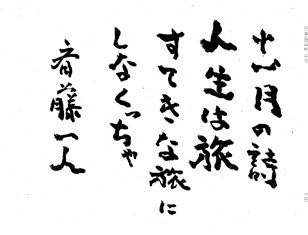 心月の詩
人生は旅
すてきな旅に
しなくっちゃ
斉藤一人